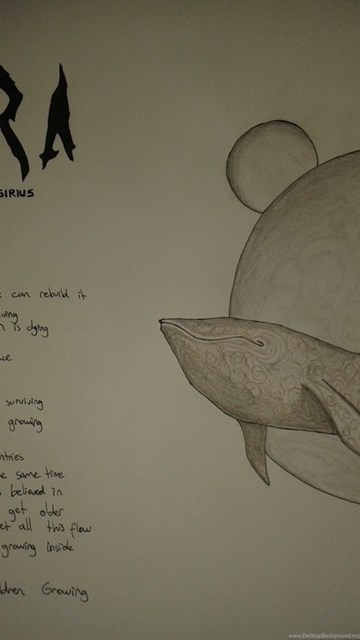 RA
SIRIUS
can rebuild it
is dying
surviving
growing
same time
believed in
get older
all this flow
growing inside
Growing
www.DesktopBackground.org